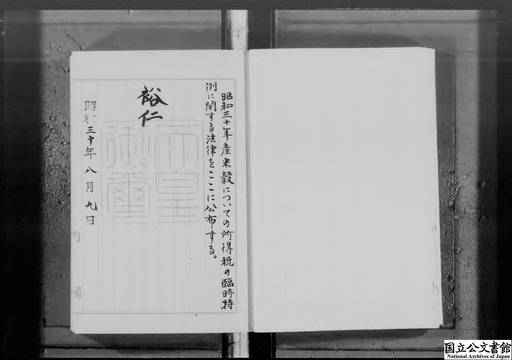 昭和三十年産米穀についての所得税の臨時特
例に関する法律をここに公布する。
裕仁
天皇
御璽
昭和三十年八月九日
内閣
国立公文書館
National Archives of Japan